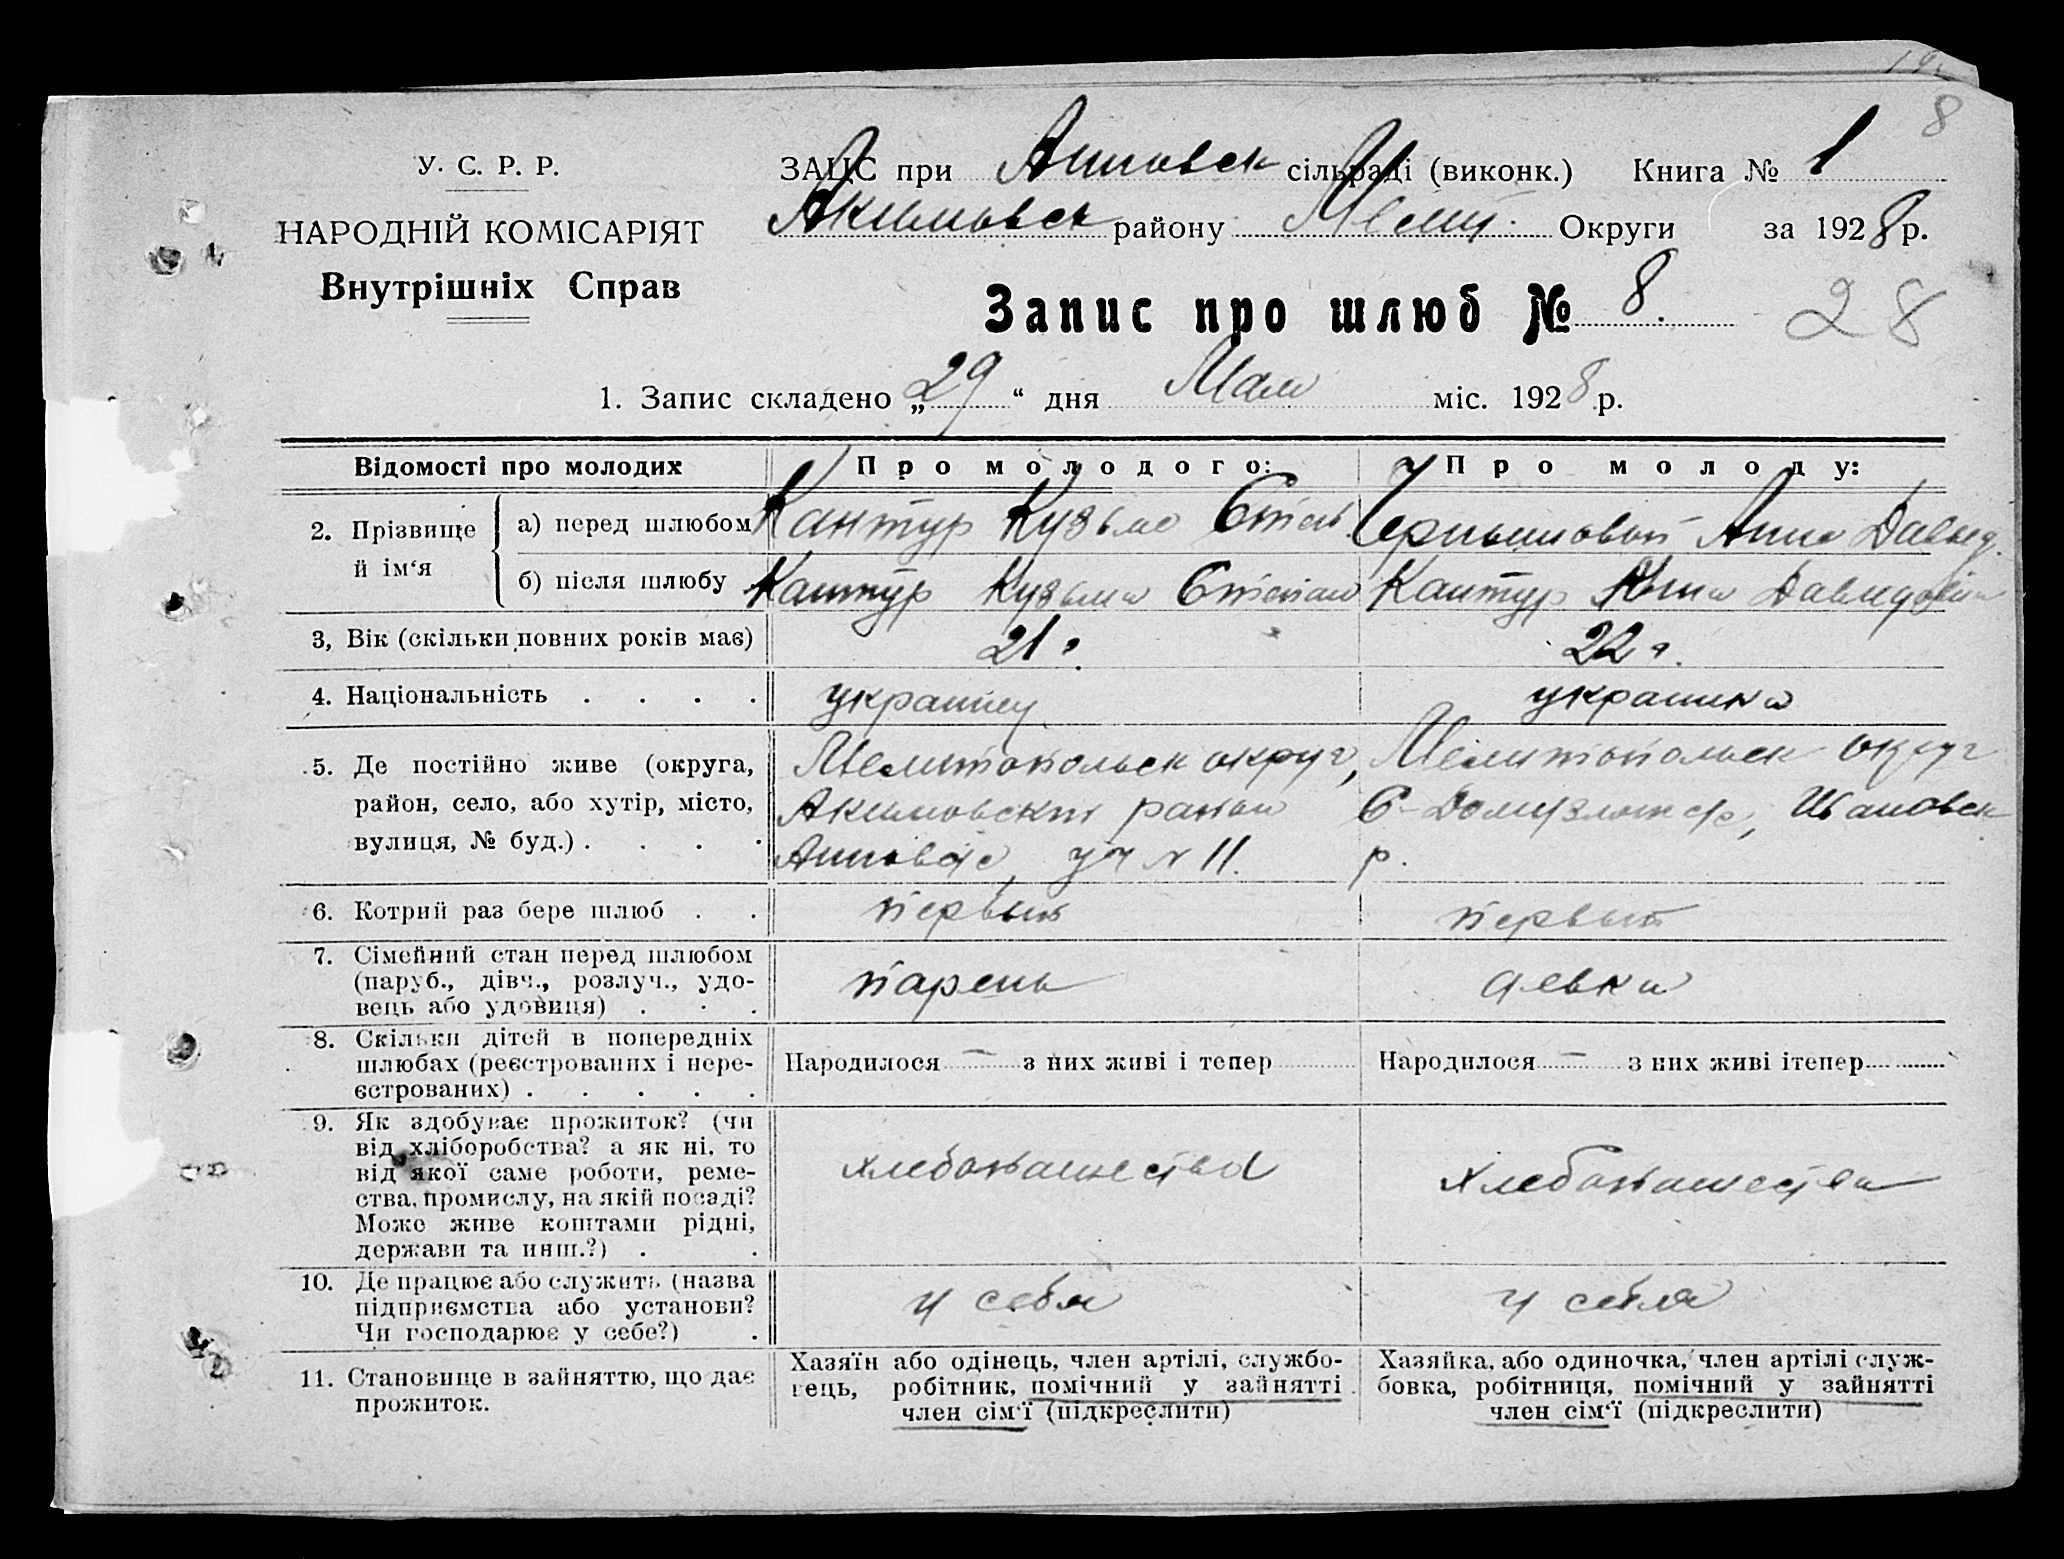 8
У. С. Р. Р.
НАРОДНІЙ КОМІСАРІЯТ
Внутрішніх Справ
ЗАЦС при Анновск сільраді (виконк.) Книга № 1
Акимовск району Мелит. Округи за 1928 р.
Запис про шлюб № 8.
28
1. Запис складено „29“ дня Мая міс. 1928 р.
Відомості про молодих
Про молодого:
Про молоду:
2. Прізвище й ім‘я
а) перед шлюбом
Кантур Кузьма Степ.
Анна Давид.
б) після шлюбу
Кантур Кузьма Степан
Кантур Анна Давидовна
3, Вік (скільки повних років має)
21 г.
22 г.
4. Національність . . . .
украинец
украинка
5. Де постійно живе (округа,
район, село, або хутір, місто,
вулиця, № буд.) . . . .
Мелитопольск округ,
Акимовский район
Анновка, уч N 11.
Мелитопольск округ
Ивановск
р.
6. Котрий раз бере шлюб . .
первый
первый
7. Сімейний стан перед шлюбом
(паруб., дівч., розлуч., удо-
вець або удовиця) . . .
парень
девка
8. Скільки дітей в попередніх
шлюбах (реєстрованих і нере-
єстрованих) . . . . .
Народилося — з них живі і тепер
Народилося — з них живі ітепер
9. Як здобуває прожиток? (чи
від хліборобства? а як ні, то
від якої саме роботи, реме-
ства, промислу, на якій посаді?
Може живе коштами рідні,
держави та инш.?) . .
хлебопашества
хлебопашества
10. Де працює або служить (назва
підприємства або установи?
Чи господарює у себе?) .
у себя
у себя
11. Становище в зайняттю, що дає
прожиток.
Хазяїн або одінець, член артілі, службо-
вець, робітник, помічний у зайнятті
член сім‘ї (підкреслити)
Хазяйка, або одиночка, член артілі служ-
бовка, робітниця, помічний у зайнятті
член сім‘ї (підкреслити)